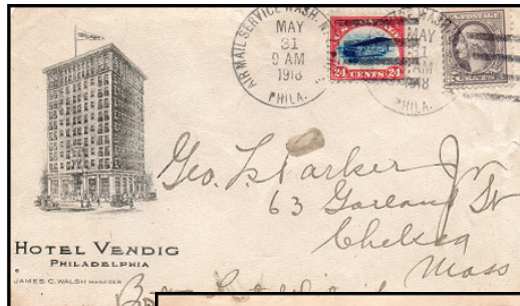 AIR MAIL SERVICE WASH. N.
MAY
31
9 AM
1918
PHILA.
24 CENTS 24
WASH.
MAY
31
AM
PHILA.
U.S. POSTAGE
Geo. L. Parker Jr
63 Garland St
Chelsea
Mass
HOTEL VENDIG
PHILADELPHIA
JAMES C. WALSH MANAGER